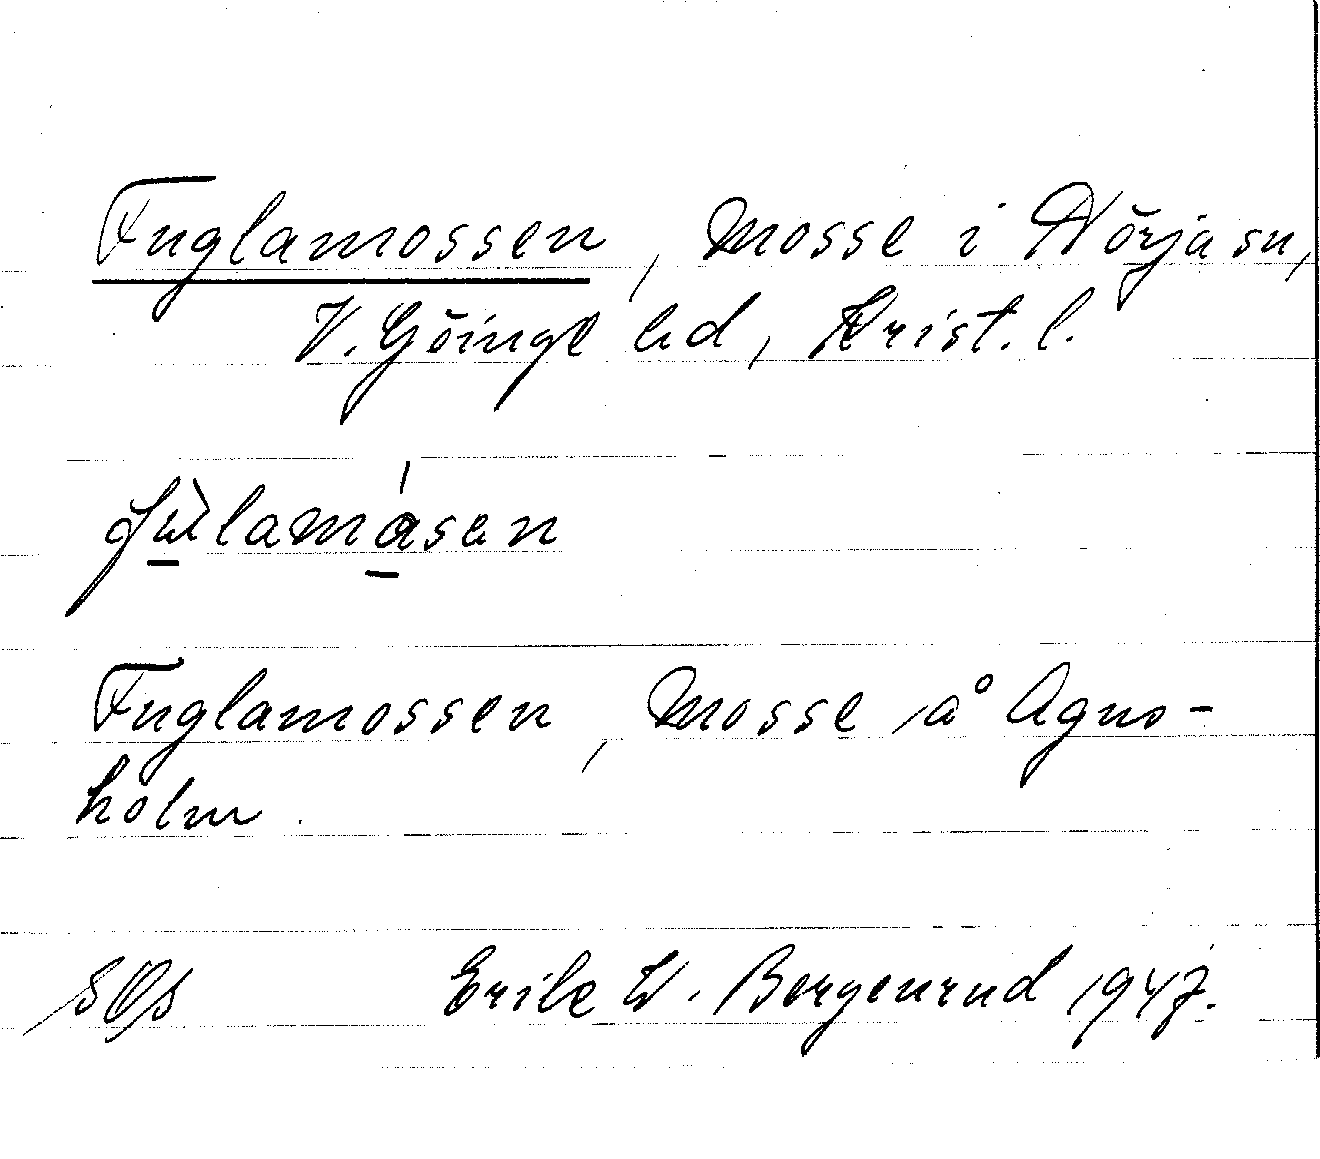 Fuglamossen, Mosse i Nörja sn,
V. Göinge hd, Krist. l.
Fuglamossen, Mosse å Agns-
holm.
Erik W. Bergenrud 1947.